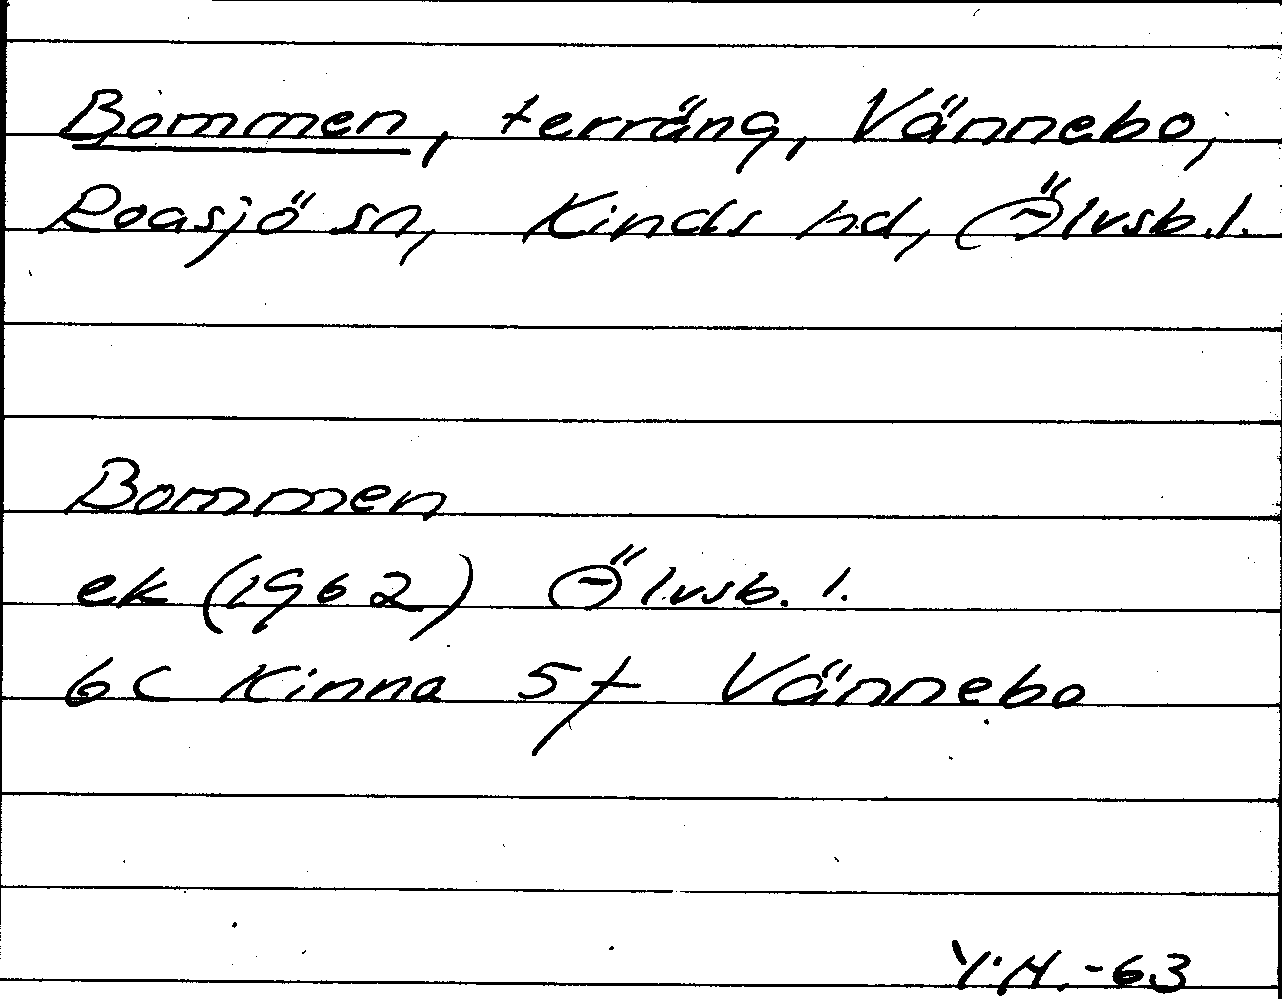 Bommen, terräng, Vännebo,
Roasjö sn, Kinds hd, Älvsb. l.
Bommen
ek (1962) Älvsb. l.
6C Kinna 5f Vännebo
Y.H. -63